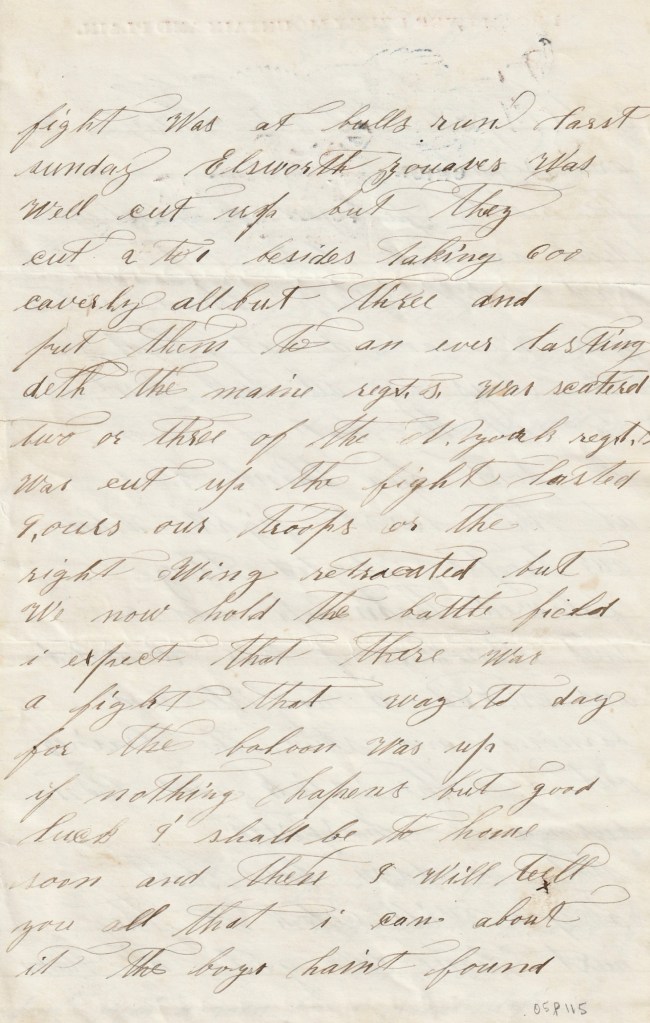 fight Was at bulls run larst
sunday Elsworth zouaves Was
Well cut up but they
cut 2 to 1 besides taking 600
caverly all but three and
put them to an ever lasting
deth the maine regt.s. was scaterd
two or three of the N. york regt.s
was cut up the fight larsted
9,ours our troops on the
right Wing retreated but
We now hold the battle field
i expect that there was
a fight that way to day
for the baloon was up
if nothing hapens but good
luck I shall be to home
soon and then I Will tell
you all that i can about
it the boys haint found
05P115